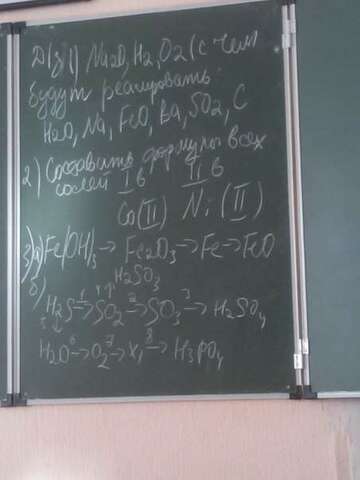 Д/з 1) Na2O, H2, O2 (с чем
будут реагировать:
H2O, Na, FeO, Ba, SO2, C
2) Составить формулы всех
солей I в II в
Co(II) Ni(II)
3) а) Fe(OH)3 → Fe2O3 → Fe → FeO
H2SO3
б) H2S 1→ SO2 2→ SO3 3→ H2SO4
H2O 6→ O2 7→ x, 8→ H3PO4